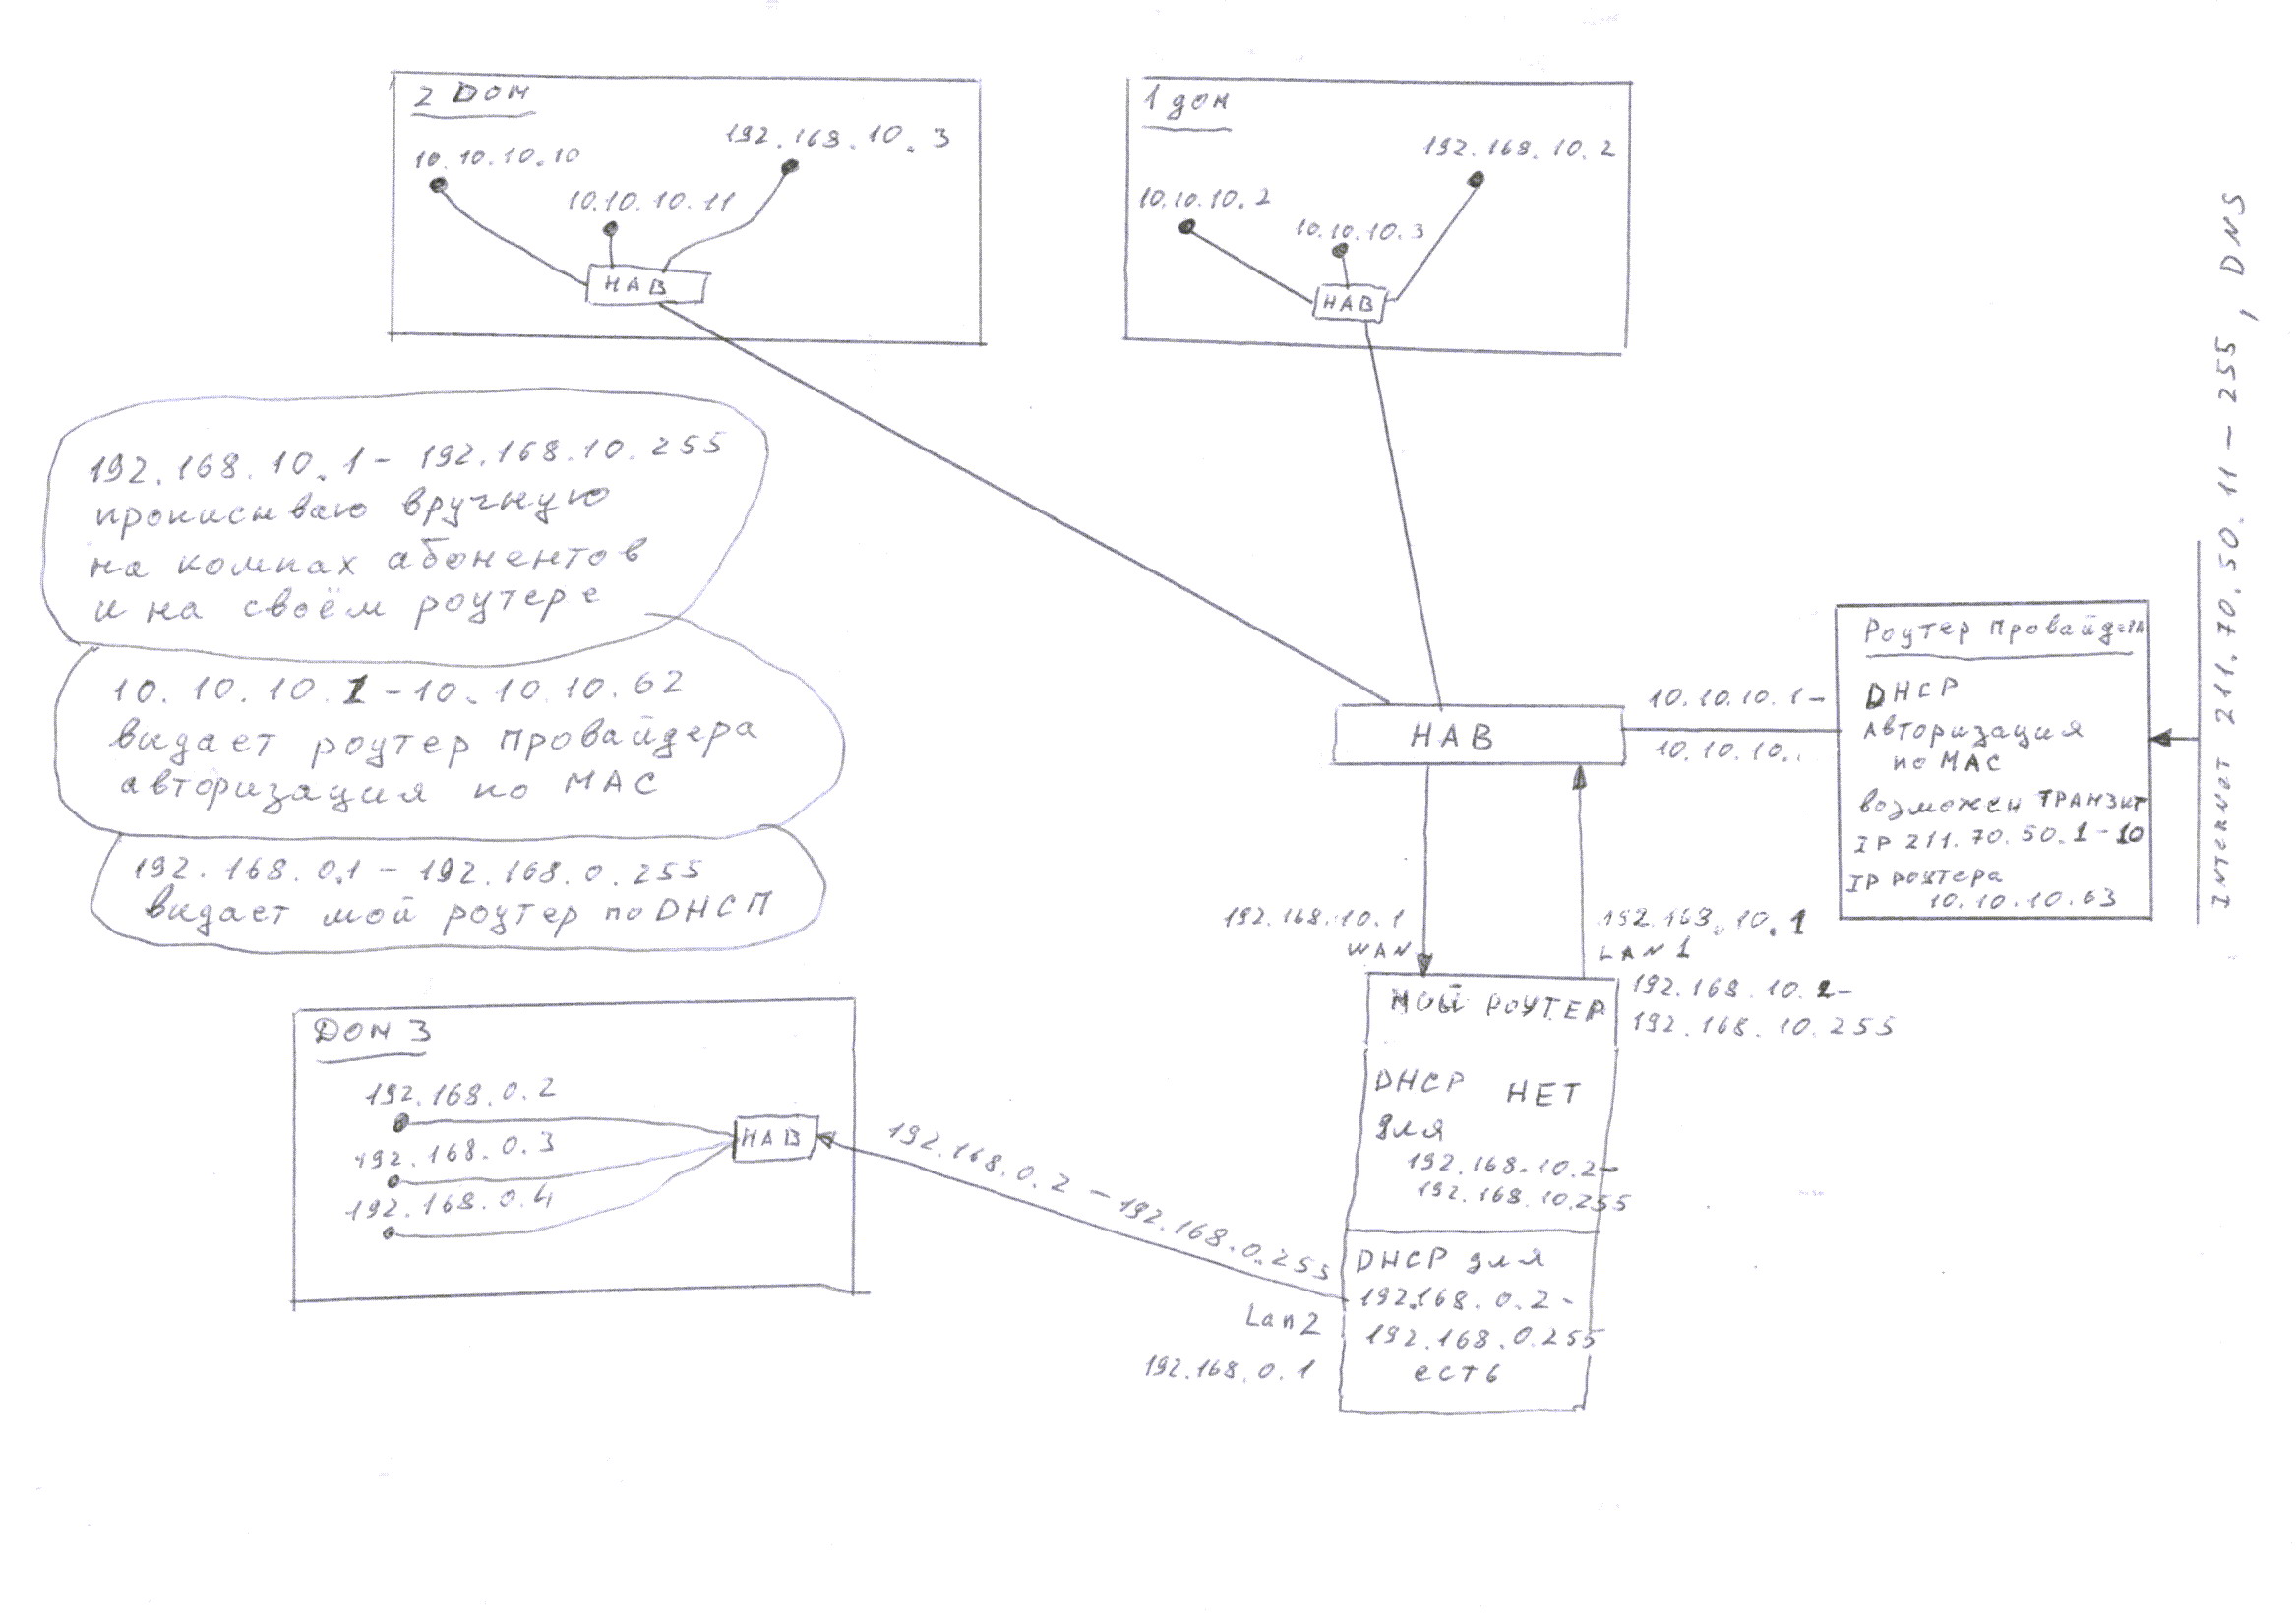 2 Dом
10.10.10.10
192.168.10.3
10.10.10.11
HAB
1 дом
192.168.10.2
10.10.10.2
10.10.10.3
HAB
192.168.10.1 - 192.168.10.255
прописываю вручную
на компах абонентов
и на своём роутере
10.10.10.1 - 10.10.10.62
выдает роутер провайдера
авторизация по MAC
192.168.0.1 - 192.168.0.255
выдает мой роутер по DHCП
HAB
10.10.10.1 -
10.10.10..
Роутер провайдера
DHCP
Авторизация
по MAC
возможен транзит
IP 211.70.50.1-10
IP роутера
10.10.10.63
211.70.50.11-255, DNS
192.168.10.1
WAN
192.168.10.1
LAN 1
192.168.10.2-
192.168.10.255
МОЙ РОУТЕР
DHCP НЕТ
для
192.168.10.2-
192.168.10.255
DHCP для
192.168.0.2-
192.168.0.255
есть
Lan2
192.168.0.1
192.168.0.2 - 192.168.0.255
Dом 3
192.168.0.2
192.168.0.3
192.168.0.4
HAB